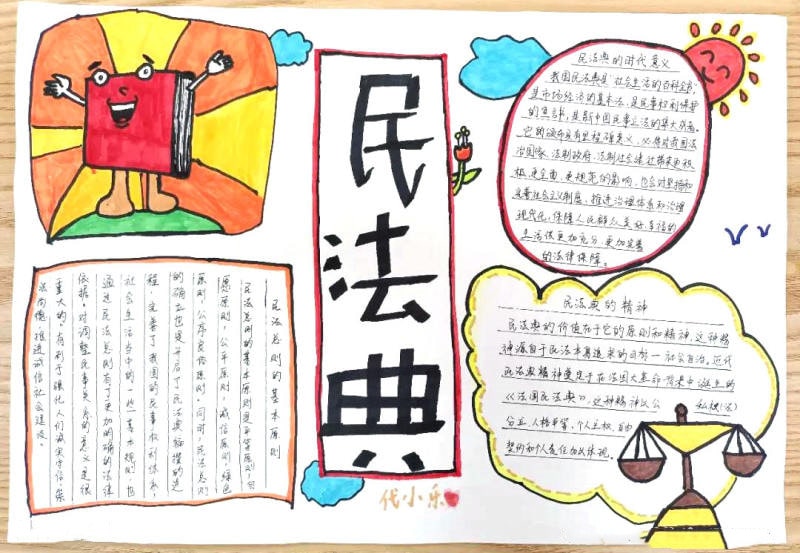 民法典
民法典的时代意义
我国民法典是“社会生活的百科全书”
是市场经济的基本法，是民事权利保护
的宣言书，是新中国民事立法的集大成者。
它的颁布具有里程碑意义，必将对我国法
治国家、法制政府、法制社会建设带来更积
极、更全面、更规范的影响，也会对坚持和
完善社会主义制度、推进治理体系和治理
现代化，保障人民群众美好生活的
生活依更加充分、更加完善
的法律保障。
民法总则的基本原则
民法总则的基本原则是平等原则，自
愿原则，公平原则，诚信原则，绿色
原则，公序良俗原则。同时，民法总则
的确立也更开启了民法典编撰的进
程，完善了我国的民事权利体系，
社会生活当中的一些基本规则，也
通过民法总则有了更加的明确的法律
依据。对调整民事关系的意义是很
重大的。有利于强化人们诚实守信，崇
法尚德，推进诚信社会建设。
民法典的精神
民法典的价值在于它的原则和精神，这种精
神源自于民法本身追求的目标——社会自治，近代
民法典精神奠定于在法国大革命背景中诞生的
《法国民法典》，这种精神以公 私权(法)
分立、人格平等、个人主权、自由
契约和个人责任加以体现。
代小乐